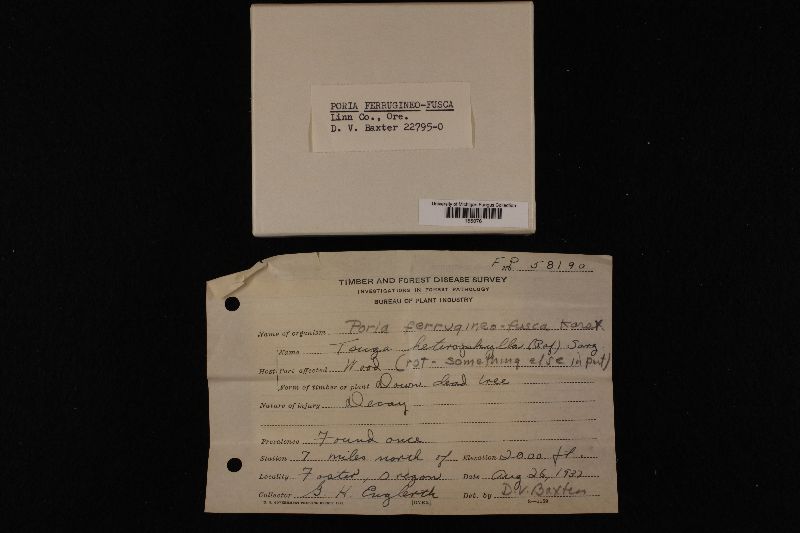 PORIA FERRUGINEO-FUSCA
Linn Co., Ore.
D. V. Baxter 22795-O
University of Michigan Fungus Collection
F.P. No. 58190
TIMBER AND FOREST DISEASE SURVEY
INVESTIGATIONS IN FOREST PATHOLOGY
BUREAU OF PLANT INDUSTRY
Name of organism Poria ferrugineo-fusca Karst
Name Tsuga heterophylla (Raf) Sarg.
Host Part affected Wood (rot - something else in put)
Form of timber or plant Down dead tree
Nature of injury Decay
Prevalence Found once
Station 7 miles north of Elevation 2000 ft.
Locality Foster, Oregon Date Aug 26, 1932
Collector G. H. Englerth Det. by D.V. Baxter